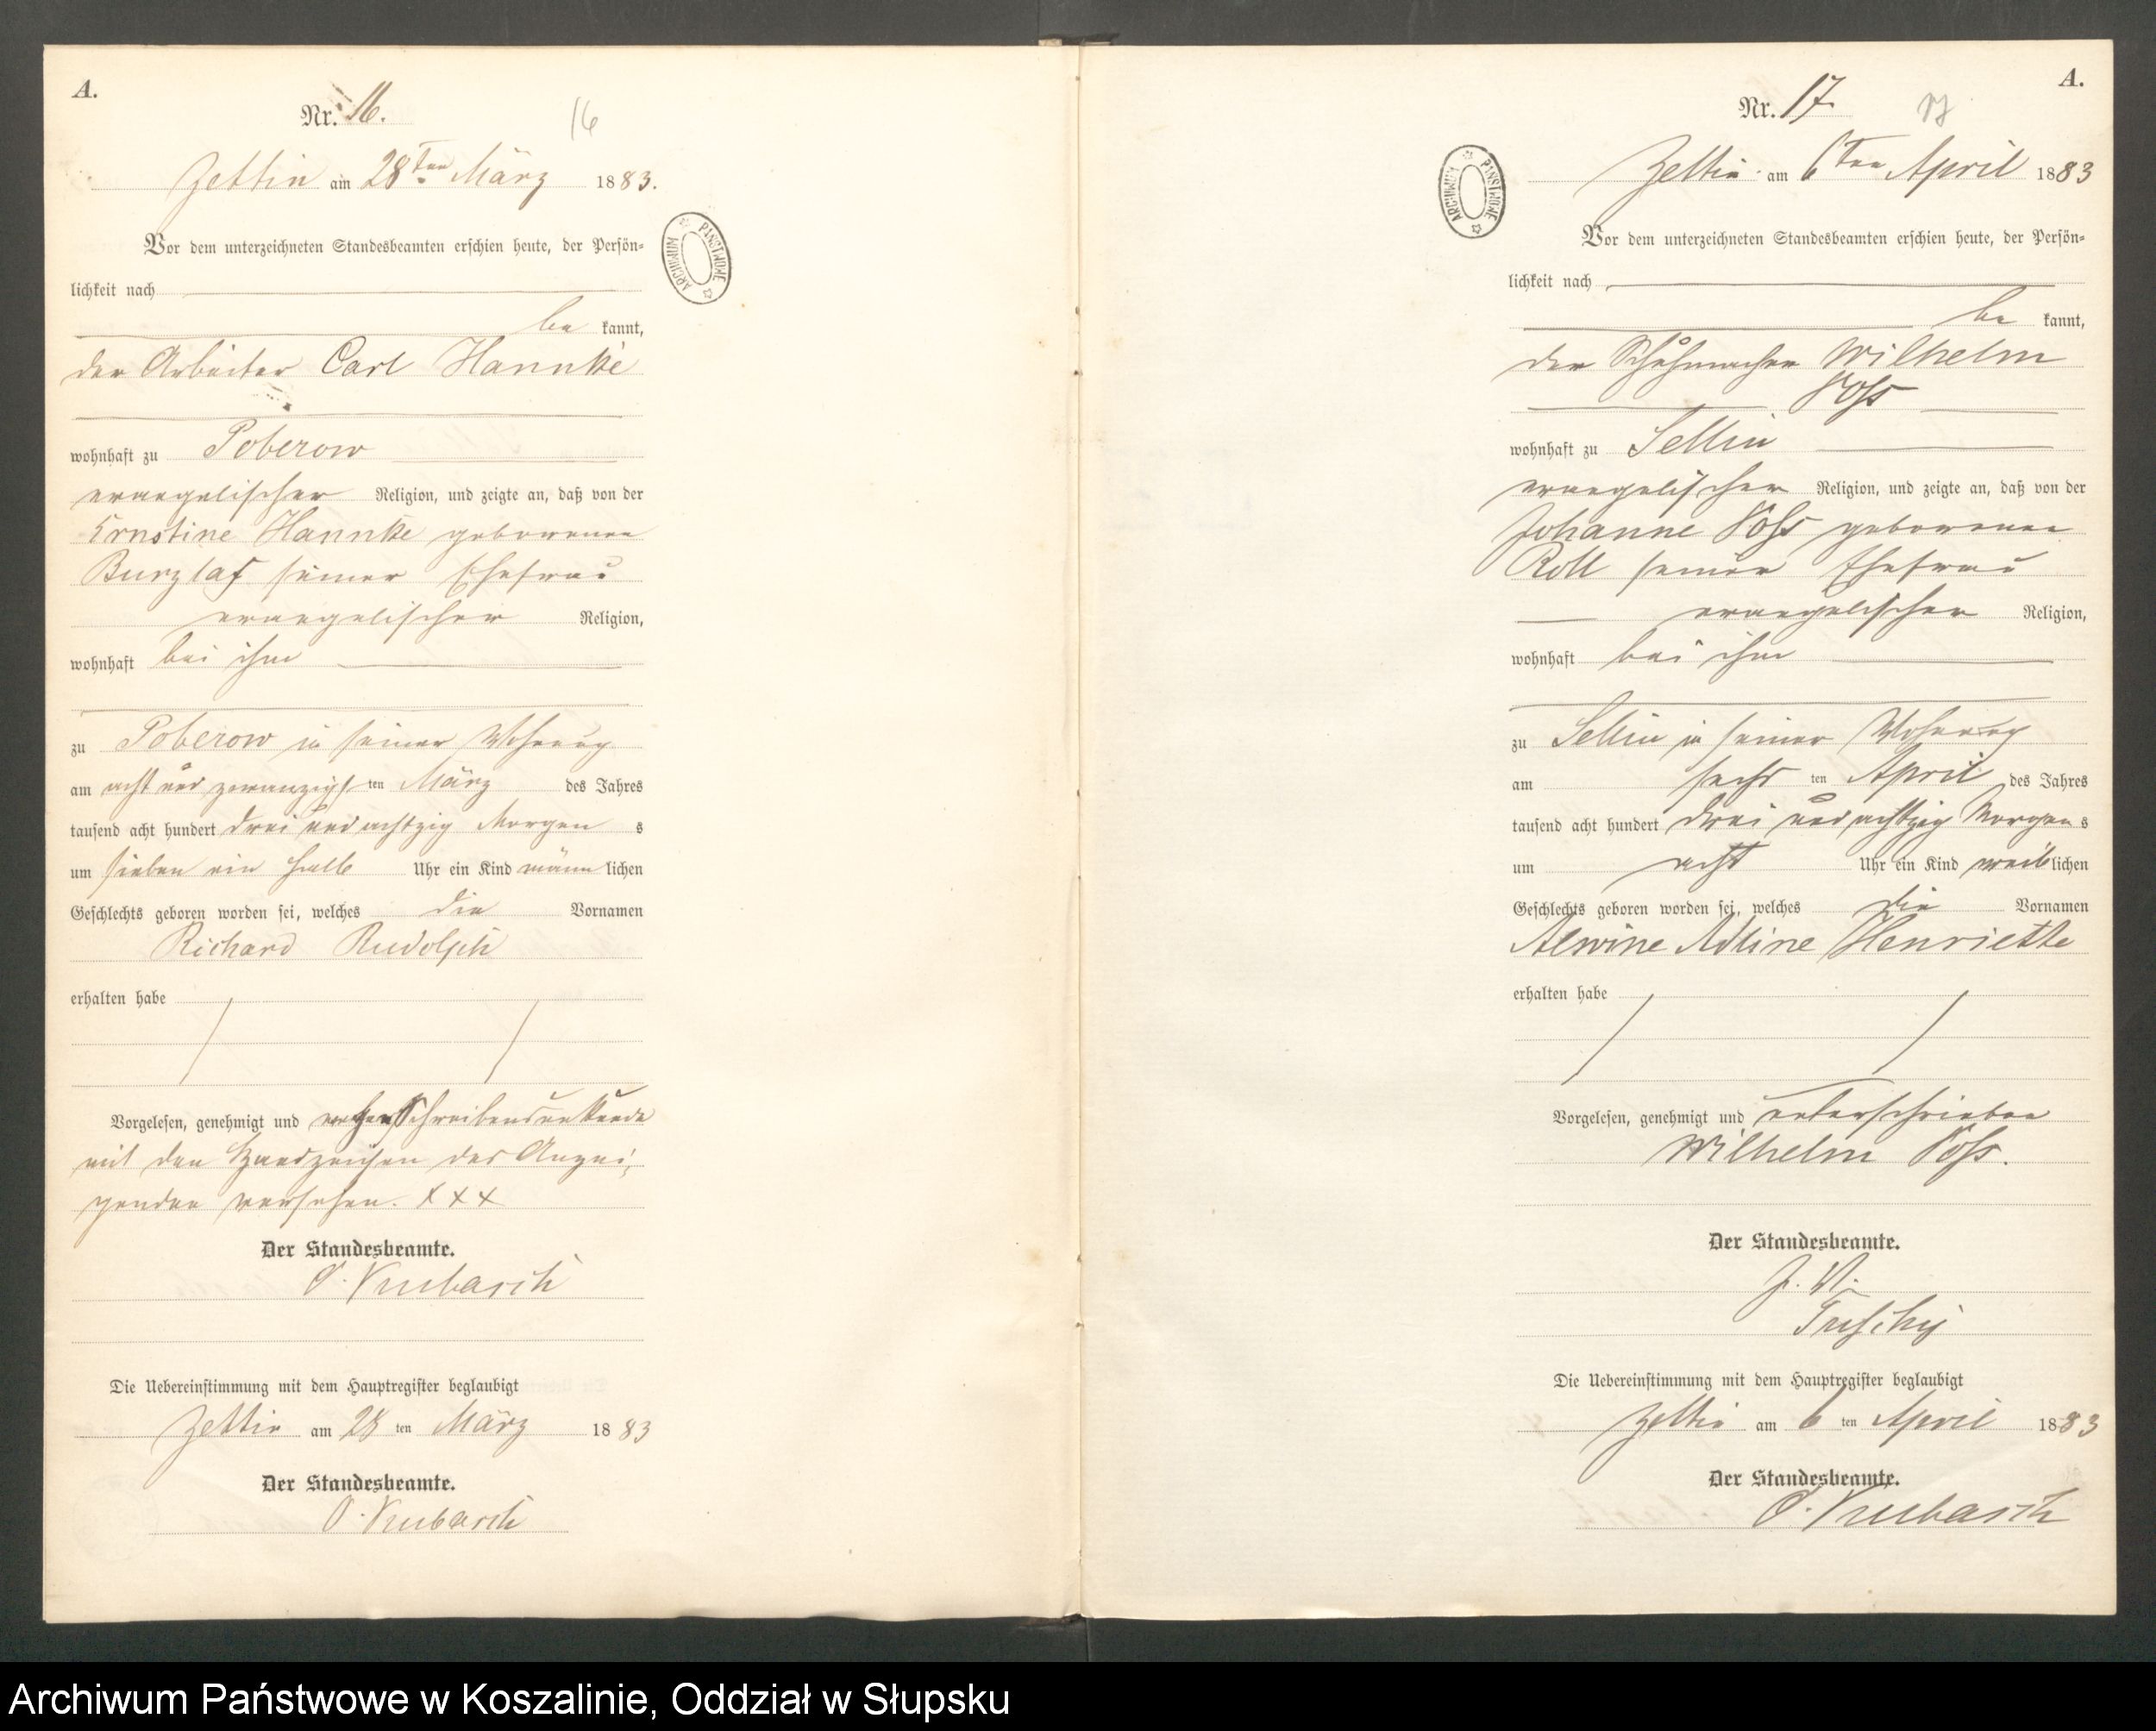 A.
Nr. 16.
16
Zettin am 28ten März 1883.
Vor dem unterzeichneten Standesbeamten erschien heute, der Persön-
lichkeit nach
be kannt,
der Arbeiter Carl Hannke
wohnhaft zu Poberow
evangelischer Religion, und zeigte an, daß von der
Ernstine Hannke geborenen
Burzlaf seiner Ehefrau
evangelischer Religion,
wohnhaft bei ihm
zu Poberow in seiner Wohnung
am acht und zwanzigsten März des Jahres
tausend acht hundert drei und achtzig Morgen s
um sieben ein halb Uhr ein Kind männlichen
Geschlechts geboren worden sei, welches die Vornamen
Richard Rudolph
erhalten habe
Vorgelesen, genehmigt und wegen Schreibensunkunde
mit den Handzeichen des Anzei-
genden versehen. x x x
Der Standesbeamte.
O. Kubasch
Die Uebereinstimmung mit dem Hauptregister beglaubigt
Zettin am 28 ten März 1883
Der Standesbeamte.
O. Kubasch
ARCHIWUM PAŃSTWOWE
A.
Nr. 17.
17
Zettin am 6ten April 1883
Vor dem unterzeichneten Standesbeamten erschien heute, der Persön-
lichkeit nach
be kannt,
der Schuhmacher Wilhelm
Voß
wohnhaft zu Sellin
evangelischer Religion, und zeigte an, daß von der
Johanne Voß geborenen
Roll seiner Ehefrau
evangelischer Religion,
wohnhaft bei ihm
zu Sellin in seiner Wohnung
am sechsten April des Jahres
tausend acht hundert drei und achtzig Morgen s
um acht Uhr ein Kind weiblichen
Geschlechts geboren worden sei, welches die Vornamen
Alwine Adline Henriette
erhalten habe
Vorgelesen, genehmigt und unterschrieben
Wilhelm Voß.
Der Standesbeamte.
Die Uebereinstimmung mit dem Hauptregister beglaubigt
Zettin am 6 ten April 1883
Der Standesbeamte.
O. Kubasch
ARCHIWUM PAŃSTWOWE
Archiwum Państwowe w Koszalinie, Oddział w Słupsku